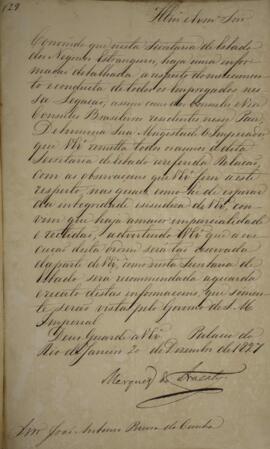 129
Illmo e Exmo Snr
Convindo que nesta Secretaria de Estado
dos Negocios Estrangeiros, haja uma infor
mação detalhada, a respeito do merecimen
to e conducta de todos os Empregados nes
sa Legação, assim como dos Consules e Vice
Consules Brasileiros residentes nesse Paiz,
Determina Sua Magestade o Imperador
que VSa remetta todos os annos a esta
Secretaria de Estado a referida Relação,
com as observações que VSa fizer a este
respeito, nas quaes, como he de esperar
da integridade e sisudeza de VSa con
vem que haja a maior imparcialidade
e advertindo VSa que a exe
cução desta ordem será tão reservada
da parte de VSa, como nesta Secretaria de
Estado será recommendada a guarda
e recato destas informações, que somen
te serão vistas pelo Governo de S. M.
Imperial
Deos Guarde a VSa Palacio do
Rio de Janeiro 20 de Dezembro de 1827
Marquez de Aracaty
Snr José Antonio Pereira da Cunha